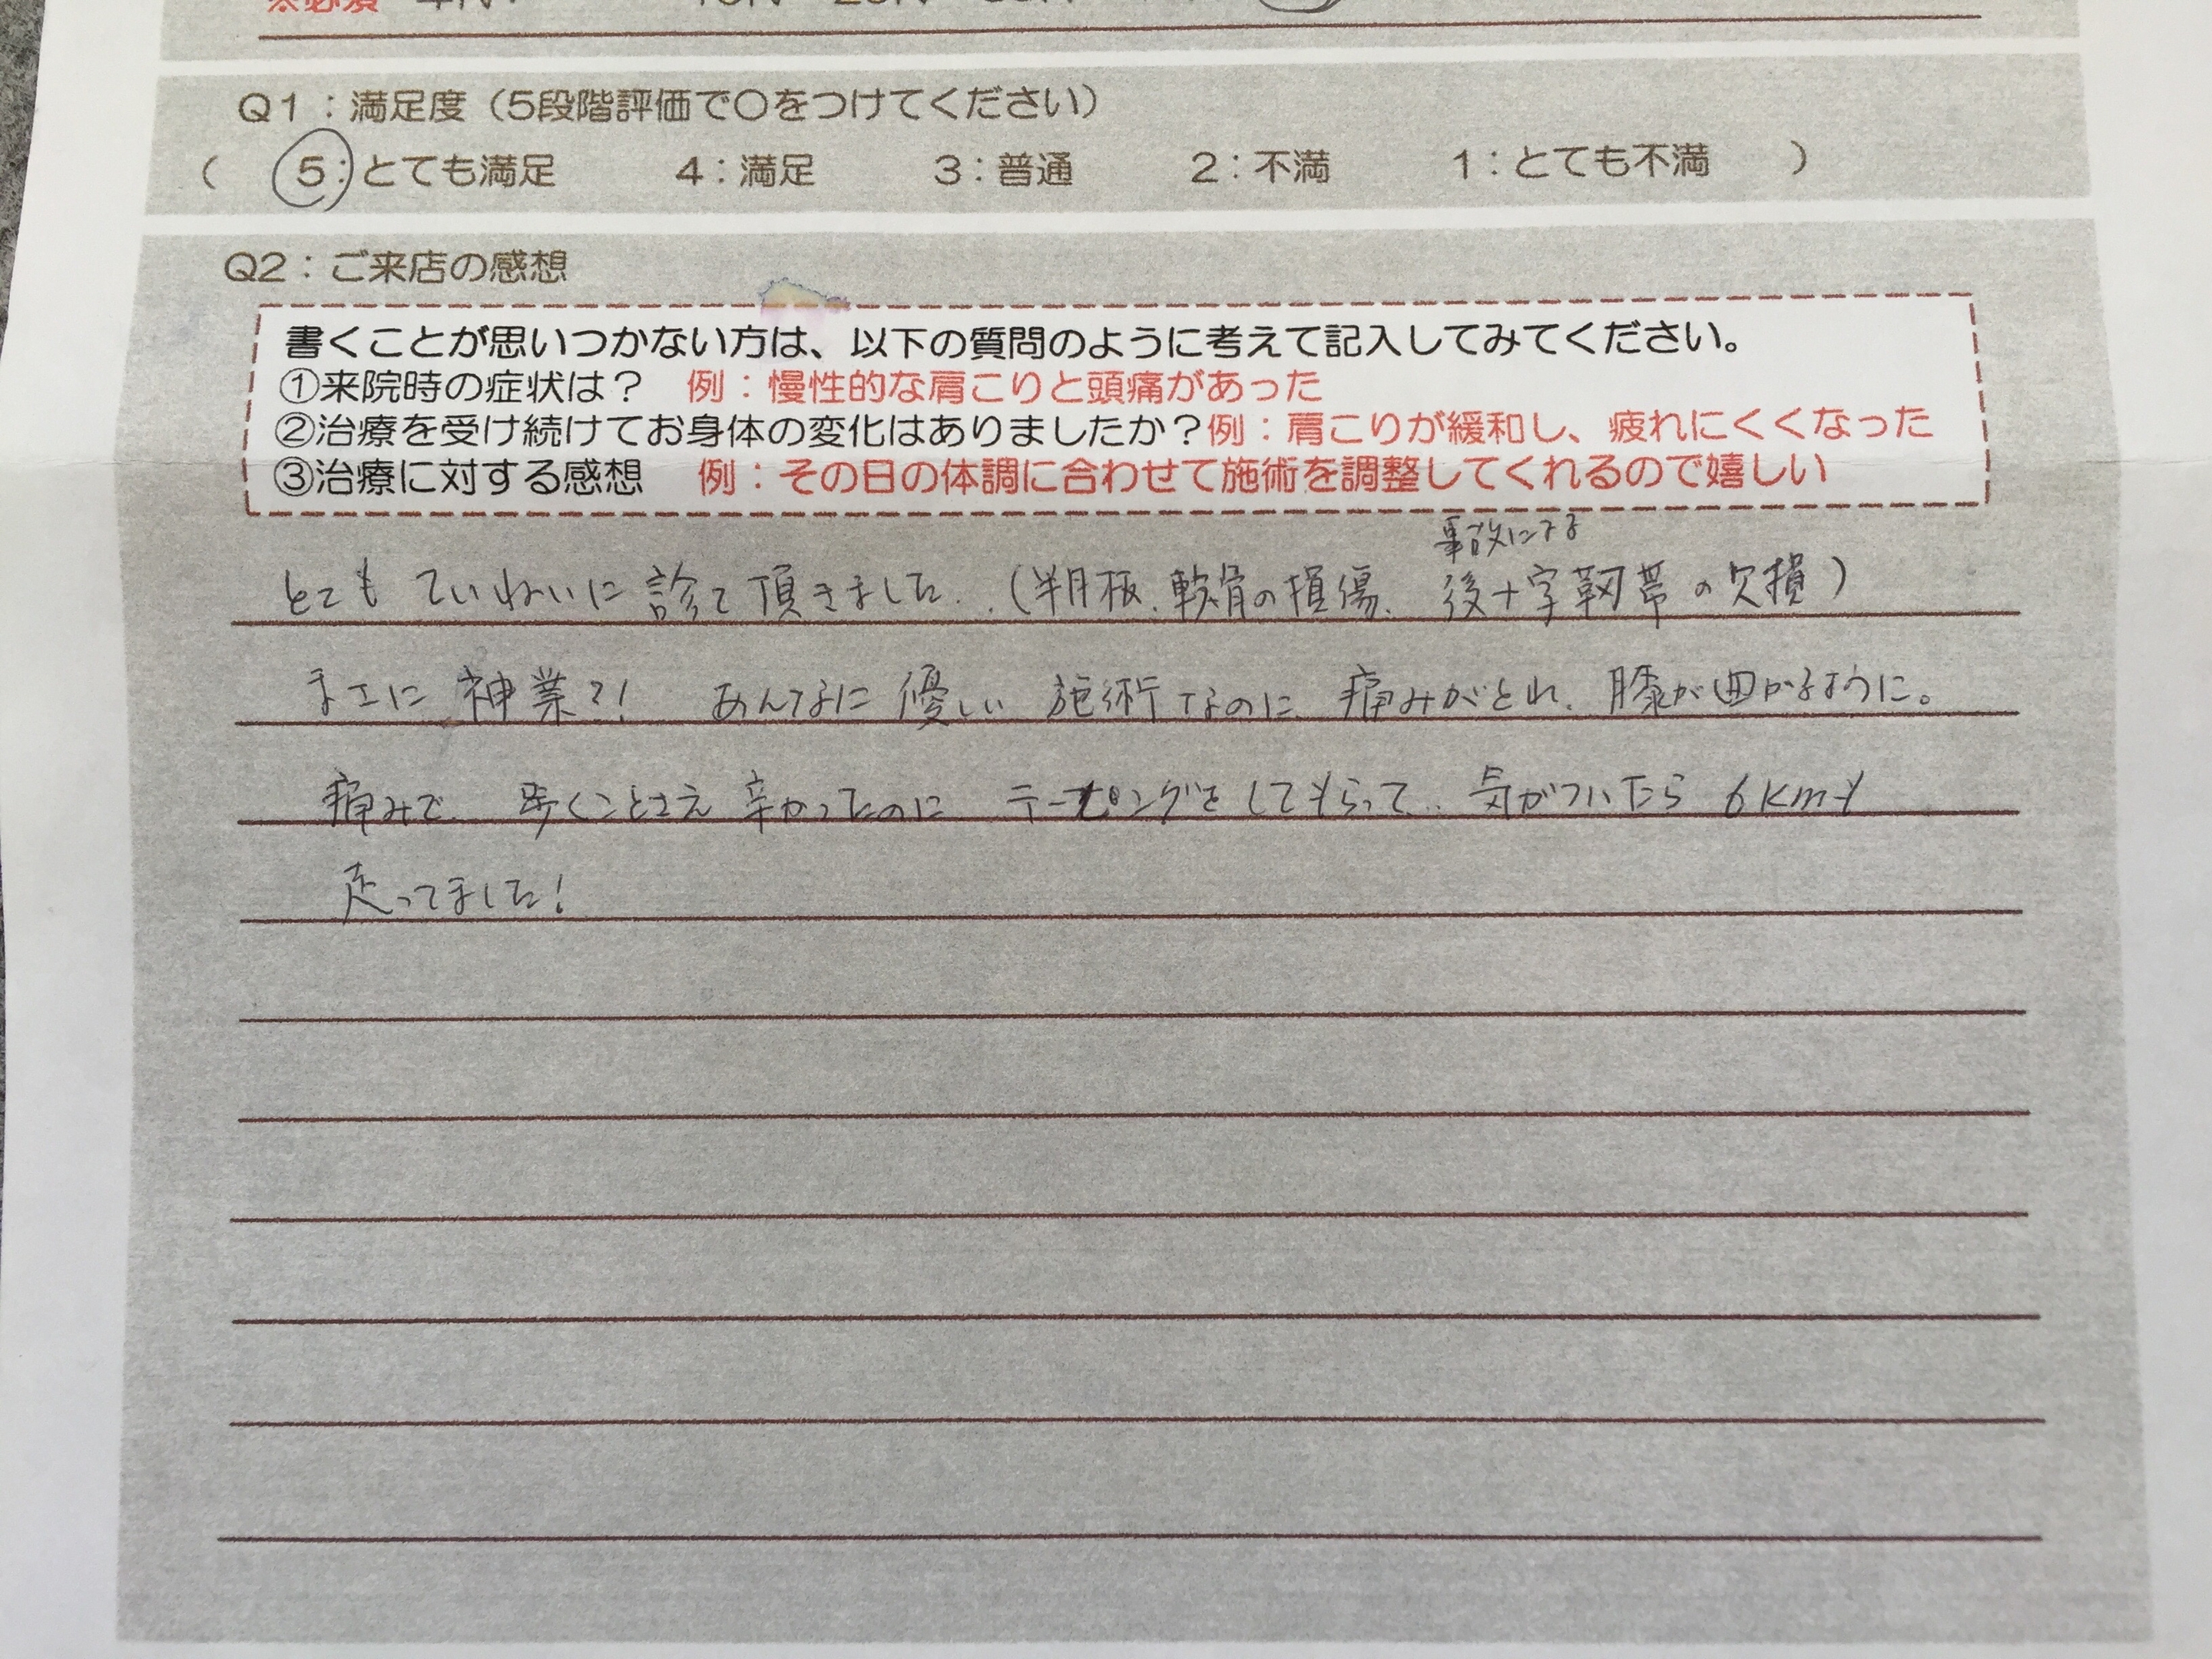 ※必須
Q1：満足度（5段階評価で〇をつけてください）
（ 5：とても満足 4：満足 3：普通 2：不満 1：とても不満 ）
Q2：ご来店の感想
書くことが思いつかない方は、以下の質問のように考えて記入してみてください。
①来院時の症状は？ 例：慢性的な肩こりと頭痛があった
②治療を受け続けてお身体の変化はありましたか？例：肩こりが緩和し、疲れにくくなった
③治療に対する感想 例：その日の体調に合わせて施術を調整してくれるので嬉しい
事故による
とても ていねいに 診て頂きました。（半月板、軟骨の損傷、後十字靭帯の欠損）
まさに 神業?! あんなに 優しい 施術なのに 痛みがとれ、膝が曲がるように。
痛みで 歩くことさえ 辛かったのに テーピングをしてもらって、気がついたら 6kmも
走ってました！